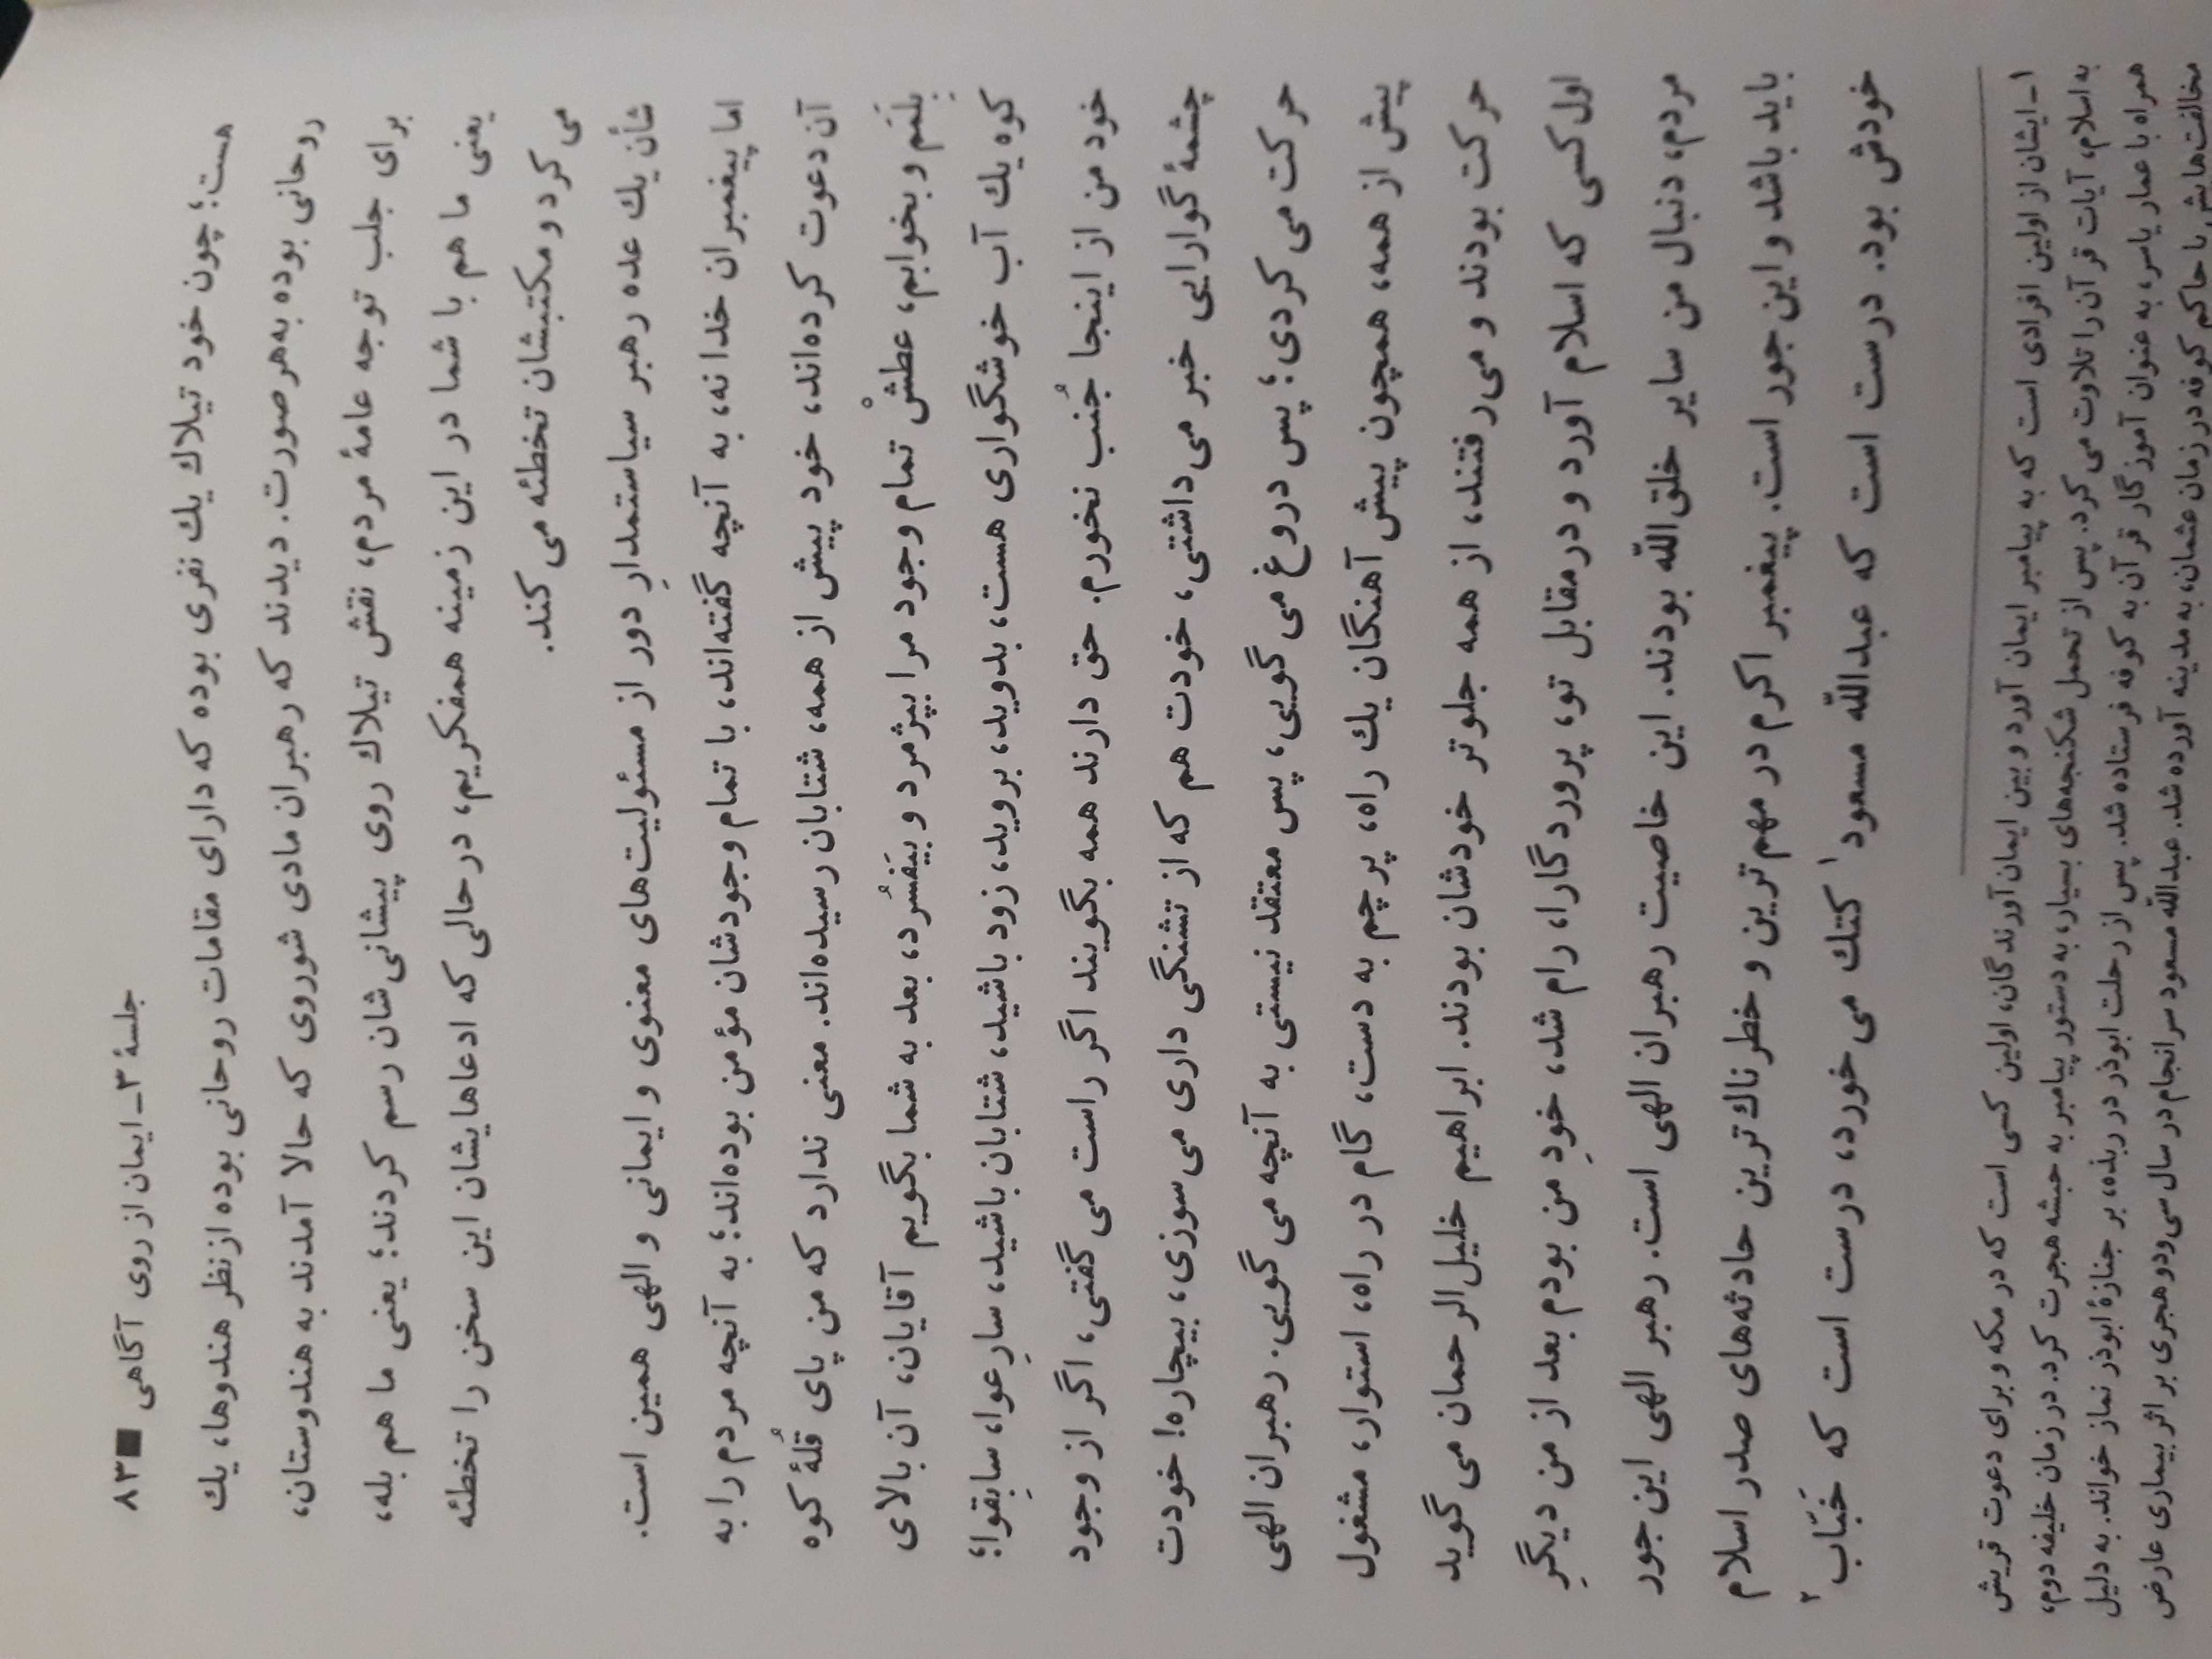 جلسهٔ ۳ـ ایمان از روی آگاهی ■ ۸۳
هست؛ چون خود تیلاك یك نفری بوده كه دارای مقامات روحانی بوده از نظر هندوها، یك
روحانی بوده به هر صورت. دیدند كه رهبران مادی شوروی كه حالا آمدند به هندوستان،
برای جلب توجه عامهٔ مردم، نقش تیلاك روی پیشانی‌شان رسم كردند؛ یعنی ما هم بله،
یعنی ما هم با شما در این زمینه همفكریم، درحالی كه ادعاهایشان این سخن را تخطئه
می‌كرد و مكتبشان تخطئه می‌كند.
شأن یك عده رهبر سیاستمدارِ دور از مسئولیت‌های معنوی و ایمانی و الهی همین است.
اما پیغمبران خدا نه، به آنچه گفته‌اند، با تمام وجودشان مؤمن بوده‌اند؛ به آنچه مردم را به
آن دعوت كرده‌اند، خود پیش از همه، شتابان رسیده‌اند. معنی ندارد كه من پای قُلهٔ كوه
بِلَمَم و بخوابم، عطشْ تمام وجود مرا بپژمرد و بیَفسُرد، بعد به شما بگویم آقایان، آن بالای
كوه یك آب خوشگواری هست، بدوید، بروید، زود باشید، شتابان باشید، سارِعوا، سابِقوا؛
خود من از اینجا جُنب نخورم. حق دارند همه بگویند اگر راست می‌گفتی، اگر از وجود
چشمهٔ گوارایی خبر می‌داشتی، خودت هم كه از تشنگی داری می‌سوزی، بیچاره! خودت
حركت می‌كردی؛ پس دروغ می‌گویی، پس معتقد نیستی به آنچه می‌گویی. رهبران الهی
پیش از همه، همچون پیش‌آهنگان یك راه، پرچم به دست، گام در راه، استوار، مشغول
حركت بودند و می‌رفتند، از همه جلوتر خودشان بودند. ابراهیم خلیل‌الرحمان می‌گوید
اول كسی كه اسلام آورد و درمقابل تو، پروردگارا، رام شد، خودِ من بودم بعد از من دیگرِ
مردم، دنبال من سایر خلق‌الله بودند. این خاصیت رهبران الهی است. رهبر الهی این‌جور
باید باشد و این‌جور است. پیغمبر اكرم در مهم‌ترین و خطرناك‌ترین حادثه‌های صدر اسلام
خودش بود. درست است كه عبدالله مسعود۱ كتك می‌خورد، درست است كه خَبّاب۲
۱ـ ایشان از اولین افرادی است كه به پیامبر ایمان آورد و بین ایمان آورندگان، اولین كسی است كه در مكه و برای دعوت قریش
به اسلام، آیات قرآن را تلاوت می‌كرد. پس از تحمل شكنجه‌های بسیار، به دستور پیامبر به حبشه هجرت كرد. در زمان خلیفه دوم،
همراه با عمار یاسر، به عنوان آموزگار قرآن به كوفه فرستاده شد. پس از رحلت ابوذر در ربذه، بر جنازهٔ ابوذر نماز خواند. به دلیل
مخالفت‌هایش با حاكم كوفه در زمان عثمان، به مدینه آورده شد. عبدالله مسعود سرانجام در سال سی‌ودو هجری بر اثر بیماری عارض